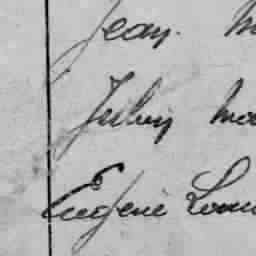 Jean. M
Julien Ma
Eugène Loui